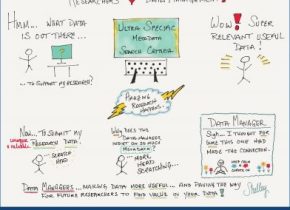 RESEARCHERS ! DATA MANAGEMENT!
HMM... WHAT DATA
IS OUT THERE...
... TO SUPPORT MY RESEARCH?
?
ULTRA SPECIFIC
METADATA
SEARCH CRITERIA
WOW! SUPER
RELEVANT USEFUL
DATA!
AMAZING
RESEARCH
HAPPENS
NOW... TO SUBMIT MY
RESEARCH DATA.
SCRATCH
HEAD
WHY DOES THIS
DATA MANAGER
INSIST ON SO MUCH
METADATA?
MORE
SCRATCHING...
DATA MANAGER
SIGH... I THOUGHT FOR
SURE THIS ONE HAD
MADE THE CONNECTION.
DATA MANAGERS... MAKING DATA MORE USEFUL... AND PAVING THE WAY
FOR FUTURE RESEARCHERS TO FIND VALUE IN YOUR DATA!
Shelley